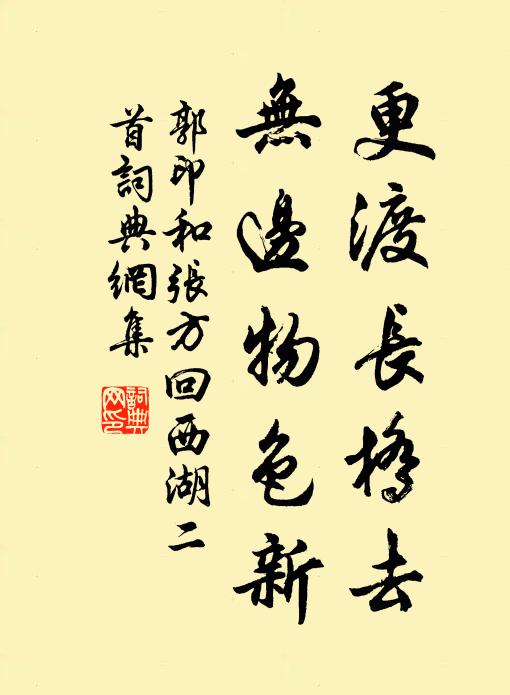 更渡長橋去
無邊物色新
郭印和張方回西湖二
首詞典網集
詞典網印